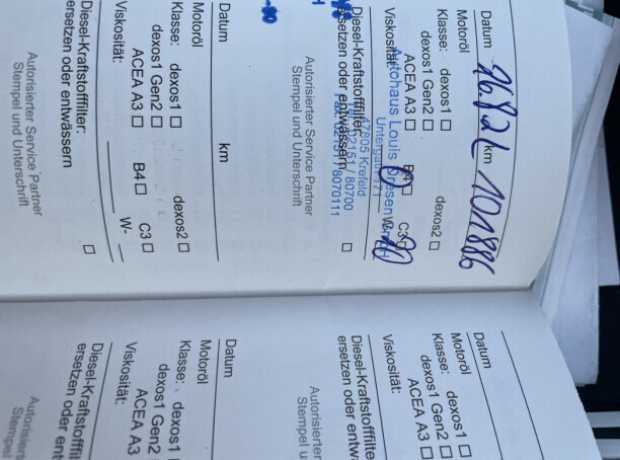 Datum 16.8.21 km 101886
Motoröl
Klasse: dexos1 ☐ dexos2 ☐
dexos1 Gen2 ☐
ACEA A3 ☐ B4 ☐ C3 ☐
Viskosität: W-
Autohaus Louis
47805 Krefeld
02151 / 80700
Fax: 02151 / 8070111
Diesel-Kraftstofffilter:
ersetzen oder entwässern ☐
Autorisierter Service Partner
Stempel und Unterschrift
Datum km
Motoröl
Klasse: dexos1 ☐ dexos2 ☐
dexos1 Gen2 ☐
ACEA A3 ☐ B4 ☐ C3 ☐
Viskosität: W-
Diesel-Kraftstofffilter:
ersetzen oder entwässern ☐
Autorisierter Service Partner
Stempel und Unterschrift
Datum
Motoröl
Klasse: dexos1 ☐
dexos1 Gen2 ☐
ACEA A3 ☐
Viskosität:
Diesel-Kraftstofffilte
ersetzen oder entwä
Autorisierter
Stempel u
Datum
Motoröl
Klasse: dexos1
dexos1 Gen2
ACEA A3
Viskosität:
Diesel-Kraftstofffil
ersetzen oder ent
Autorisiert
Stempel